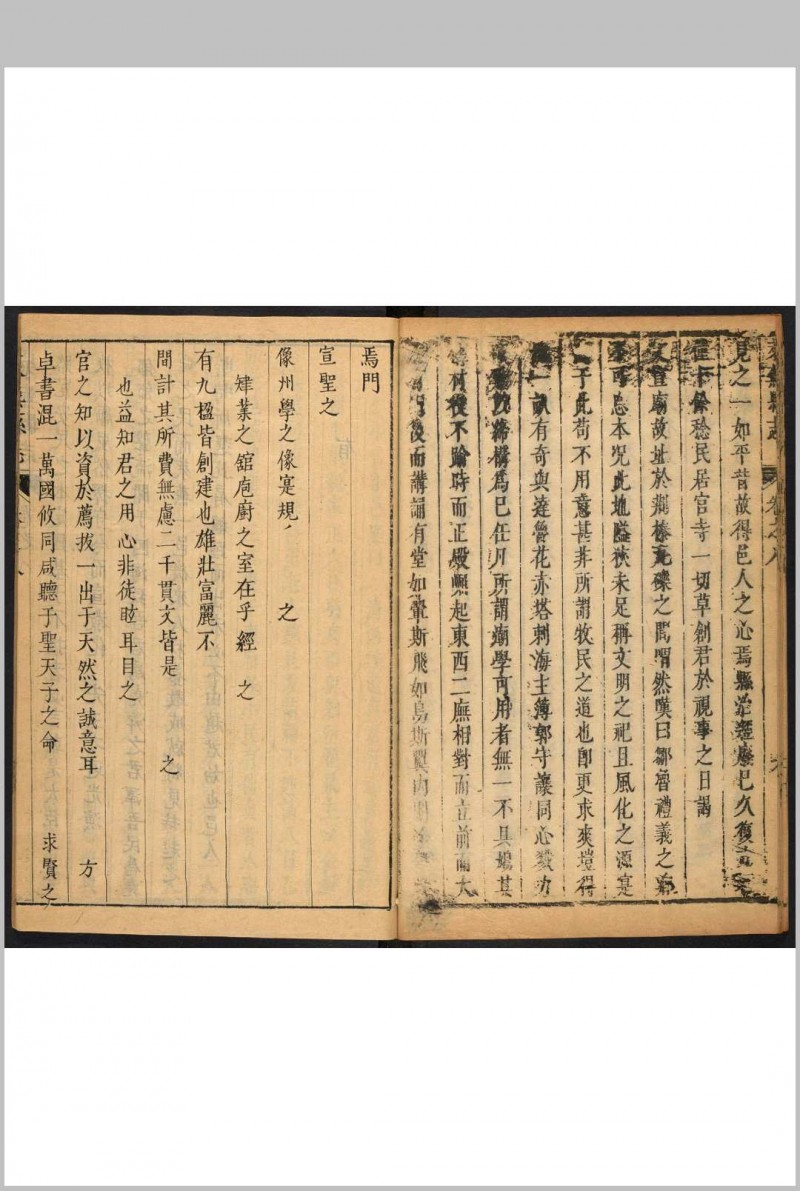 見之一如平昔故得邑人之心焉縣治經廢已久復
餘稔民居官寺一切草創君於視事之日謁
宣廟故址於荊榛瓦礫之間喟然嘆曰鄒魯禮義之
可忘本况此地隘狹未足稱文明之祀且風化之源寔
于此苟不用意甚非所謂牧民之道也即更求爽塏得
一畝有奇與達魯花赤塔刺海主簿郭守讓同心
締構為巳任凡所謂廟學可用者無一不具
村役不踰時而正殿㞮起東西二廡相對而立前
後而講誦有堂如翬斯飛如鳥斯翼内
焉門
宣聖之
像州學之像寔規 之
肄業之舘庖廚之室在乎經 之
有九楹皆創建也雄壯富麗不
間計其所費無慮二千貫文皆是 之
也益知君之用心非徒眩耳目之
官之知以資於薦拔一出于天然之誠意耳 方
卓書混一萬國攸同咸聽于聖天子之命 求賢之